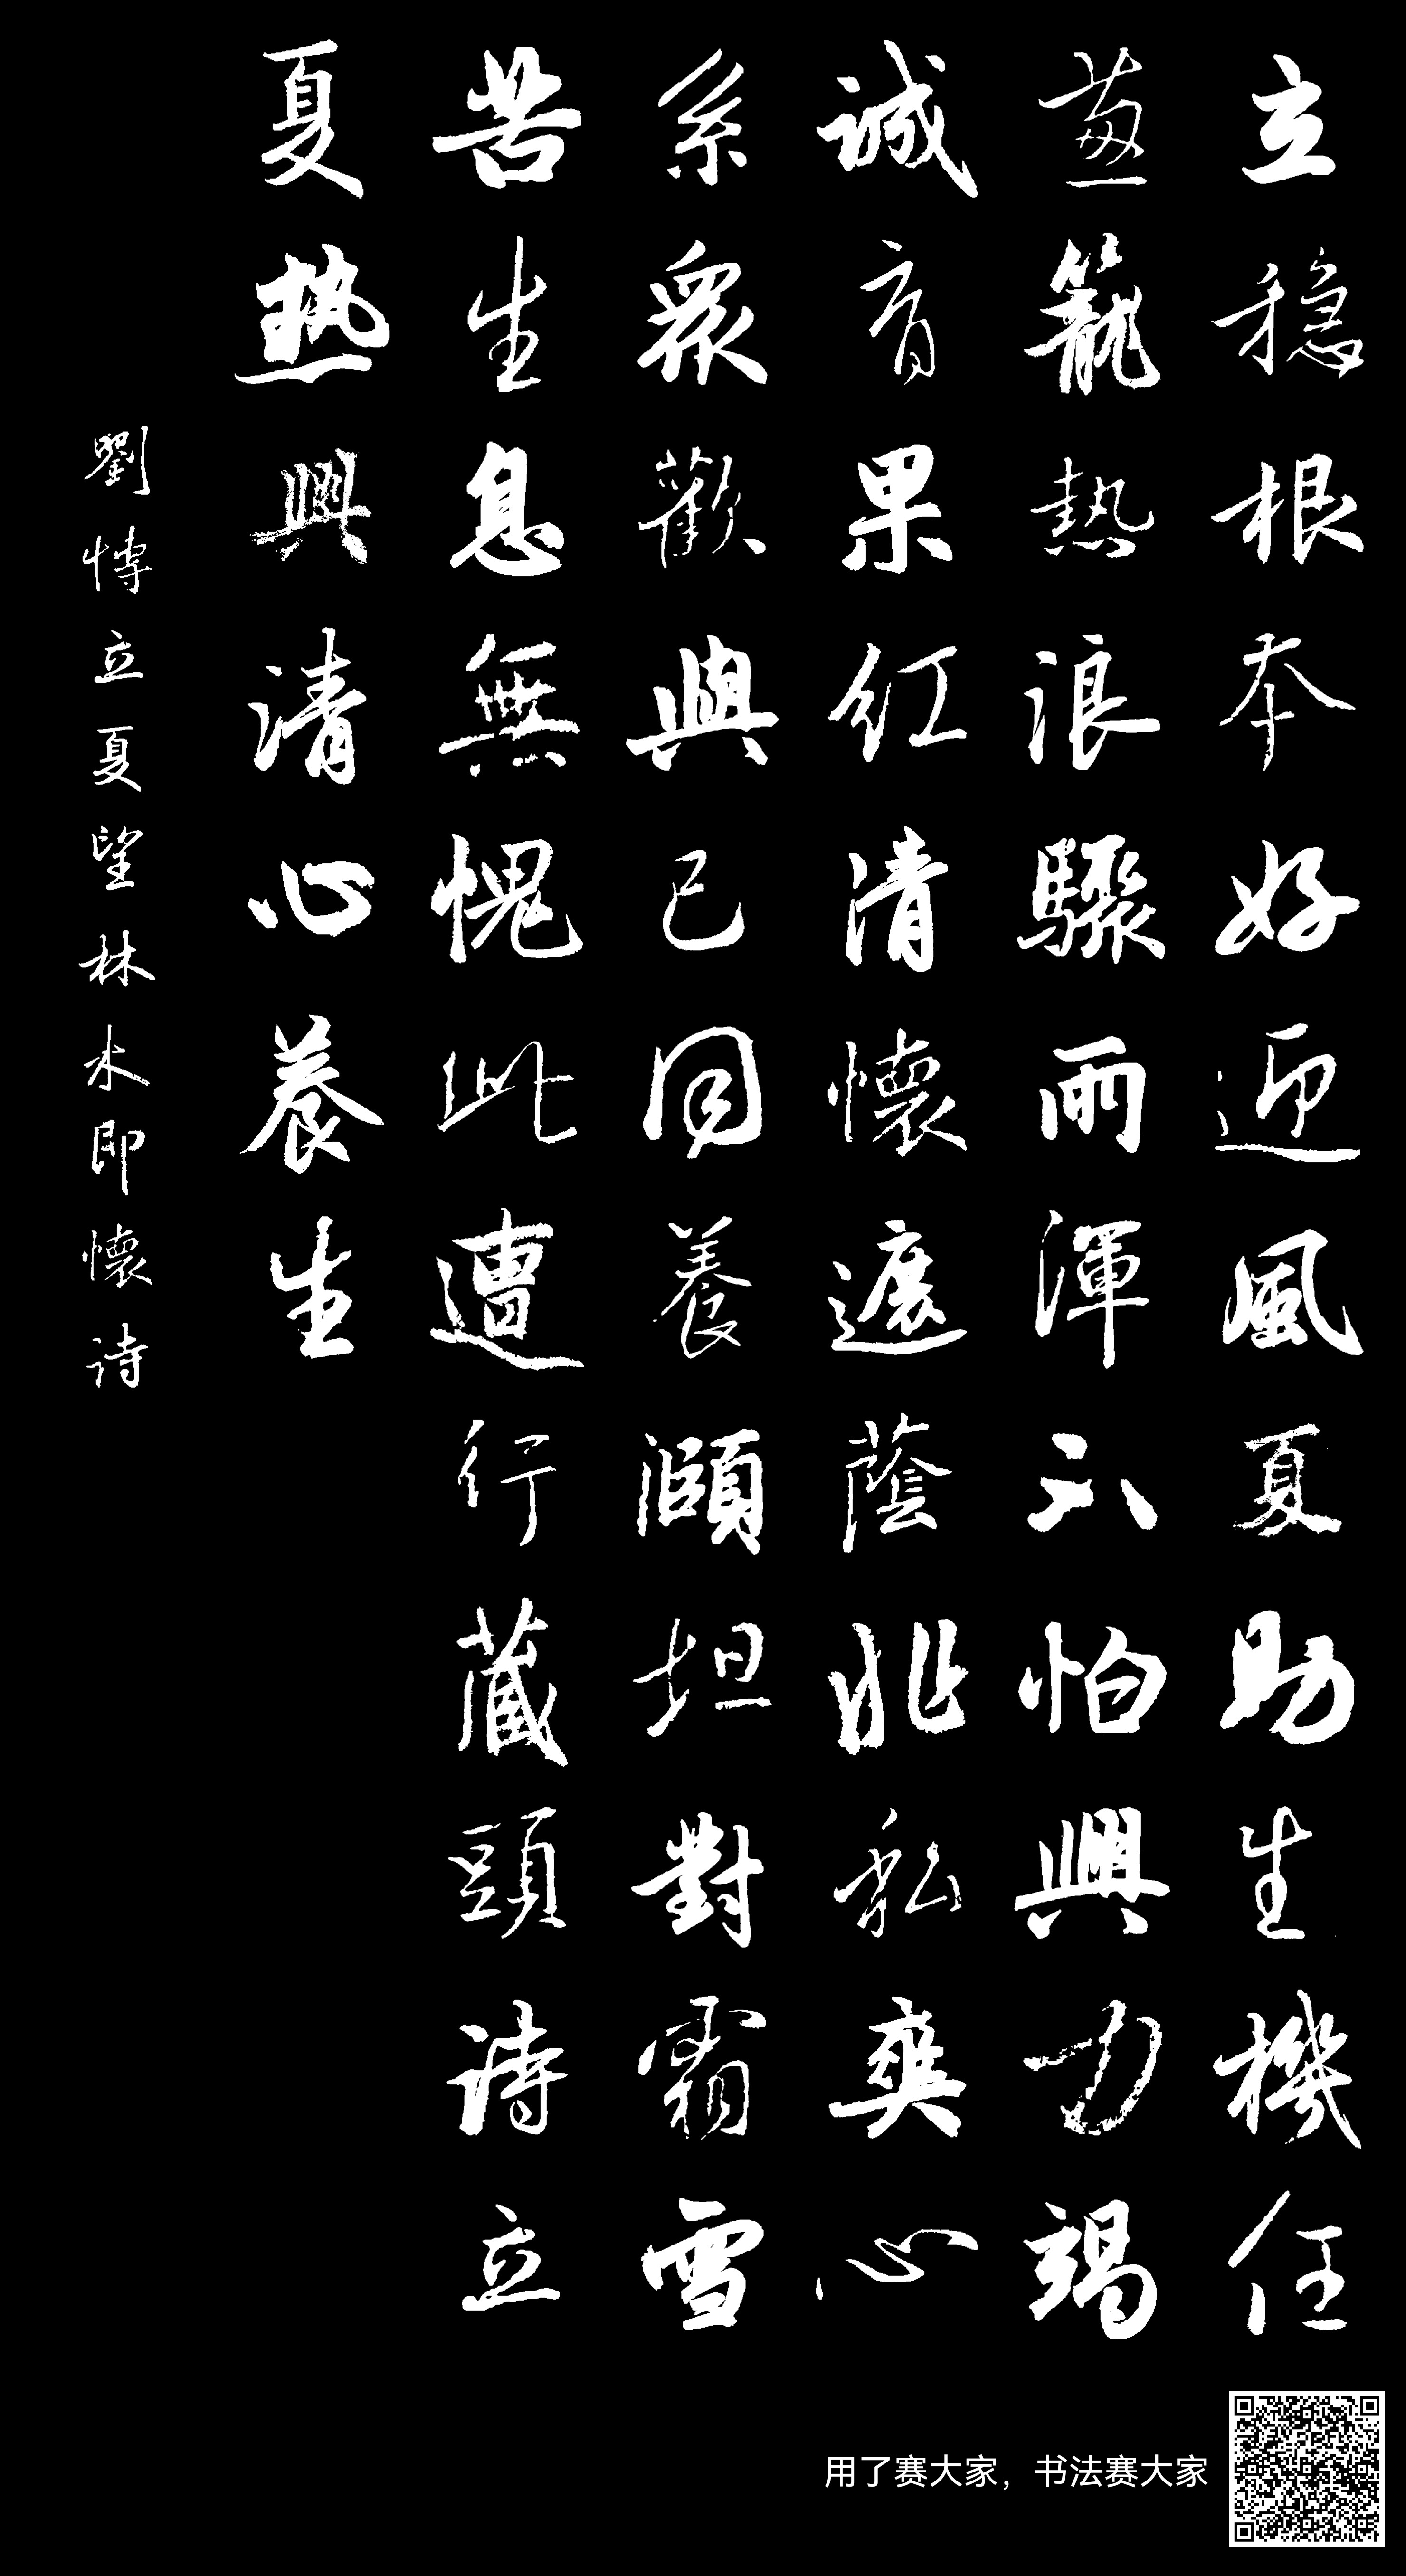 立穩根本好迎風夏助生機任
蔥籠熱浪驟雨渾不怕興力竭
誠育果紅清懷遮蔭非私爽心
系眾歡與己同養灝坦對霜雪
苦生息無愧此遭行藏頭詩立
夏热興清心養生
劉博立夏望林木即懷詩
用了赛大家，书法赛大家